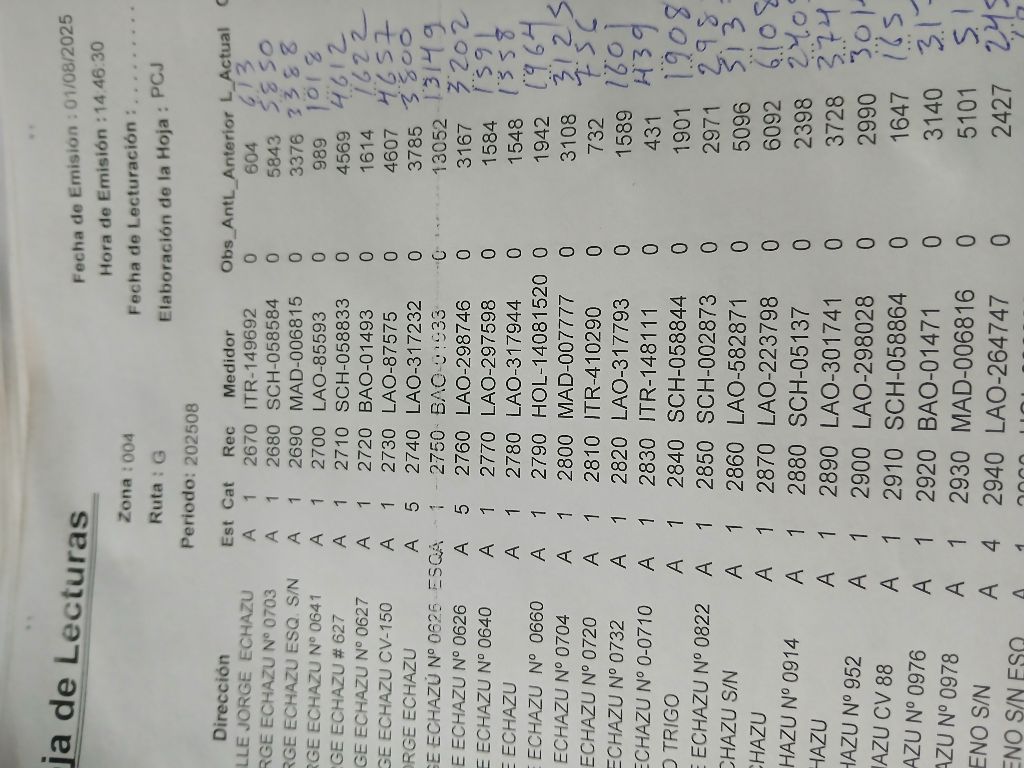 ja de Lecturas
Fecha de Emisión : 01/08/2025
Hora de Emisión : 14.46.30
Zona : 004
Fecha de Lecturación : . . . . . . . .
Ruta : G
Elaboración de la Hoja : PCJ
Periodo: 202508
Dirección Est Cat Rec Medidor Obs_AntL_Anterior L_Actual
LLE JORGE ECHAZU A 1 2670 ITR-149692 0 604 613
RGE ECHAZU Nº 0703 A 1 2680 SCH-058584 0 5843 5850
RGE ECHAZU ESQ. S/N A 1 2690 MAD-006815 0 3376 3388
RGE ECHAZU Nº 0641 A 1 2700 LAO-85593 0 989 1018
RGE ECHAZU # 627 A 1 2710 SCH-058833 0 4569 4612
GE ECHAZU Nº 0627 A 1 2720 BAO-01493 0 1614 1622
GE ECHAZU CV-150 A 1 2730 LAO-87575 0 4607 4657
ORGE ECHAZU A 5 2740 LAO-317232 0 3785 3800
E ECHAZÚ Nº 0626 ESQA 1 2750 BAO-01933 0 13052 13149
E ECHAZU Nº 0626 A 5 2760 LAO-298746 0 3167 3202
E ECHAZU Nº 0640 A 1 2770 LAO-297598 0 1584 1591
E ECHAZU A 1 2780 LAO-317944 0 1548 1558
E ECHAZU Nº 0660 A 1 2790 HOL-14081520 0 1942 1964
ECHAZU Nº 0704 A 1 2800 MAD-007777 0 3108 3125
ECHAZU Nº 0720 A 1 2810 ITR-410290 0 732 756
ECHAZU Nº 0732 A 1 2820 LAO-317793 0 1589 1601
ECHAZU N° 0-0710 A 1 2830 ITR-148111 0 431 439
O TRIGO A 1 2840 SCH-058844 0 1901 1908
E ECHAZU Nº 0822 A 1 2850 SCH-002873 0 2971 298
CHAZU S/N A 1 2860 LAO-582871 0 5096 513
CHAZU A 1 2870 LAO-223798 0 6092 6108
HAZU Nº 0914 A 1 2880 SCH-05137 0 2398 240
HAZU A 1 2890 LAO-301741 0 3728 374
HAZU Nº 952 A 1 2900 LAO-298028 0 2990 301
AZU CV 88 A 1 2910 SCH-058864 0 1647 165
AZU Nº 0976 A 1 2920 BAO-01471 0 3140 31
AZU Nº 0978 A 1 2930 MAD-006816 0 5101 51
ENO S/N A 4 2940 LAO-264747 0 2427 245
ENO S/N ESQ A